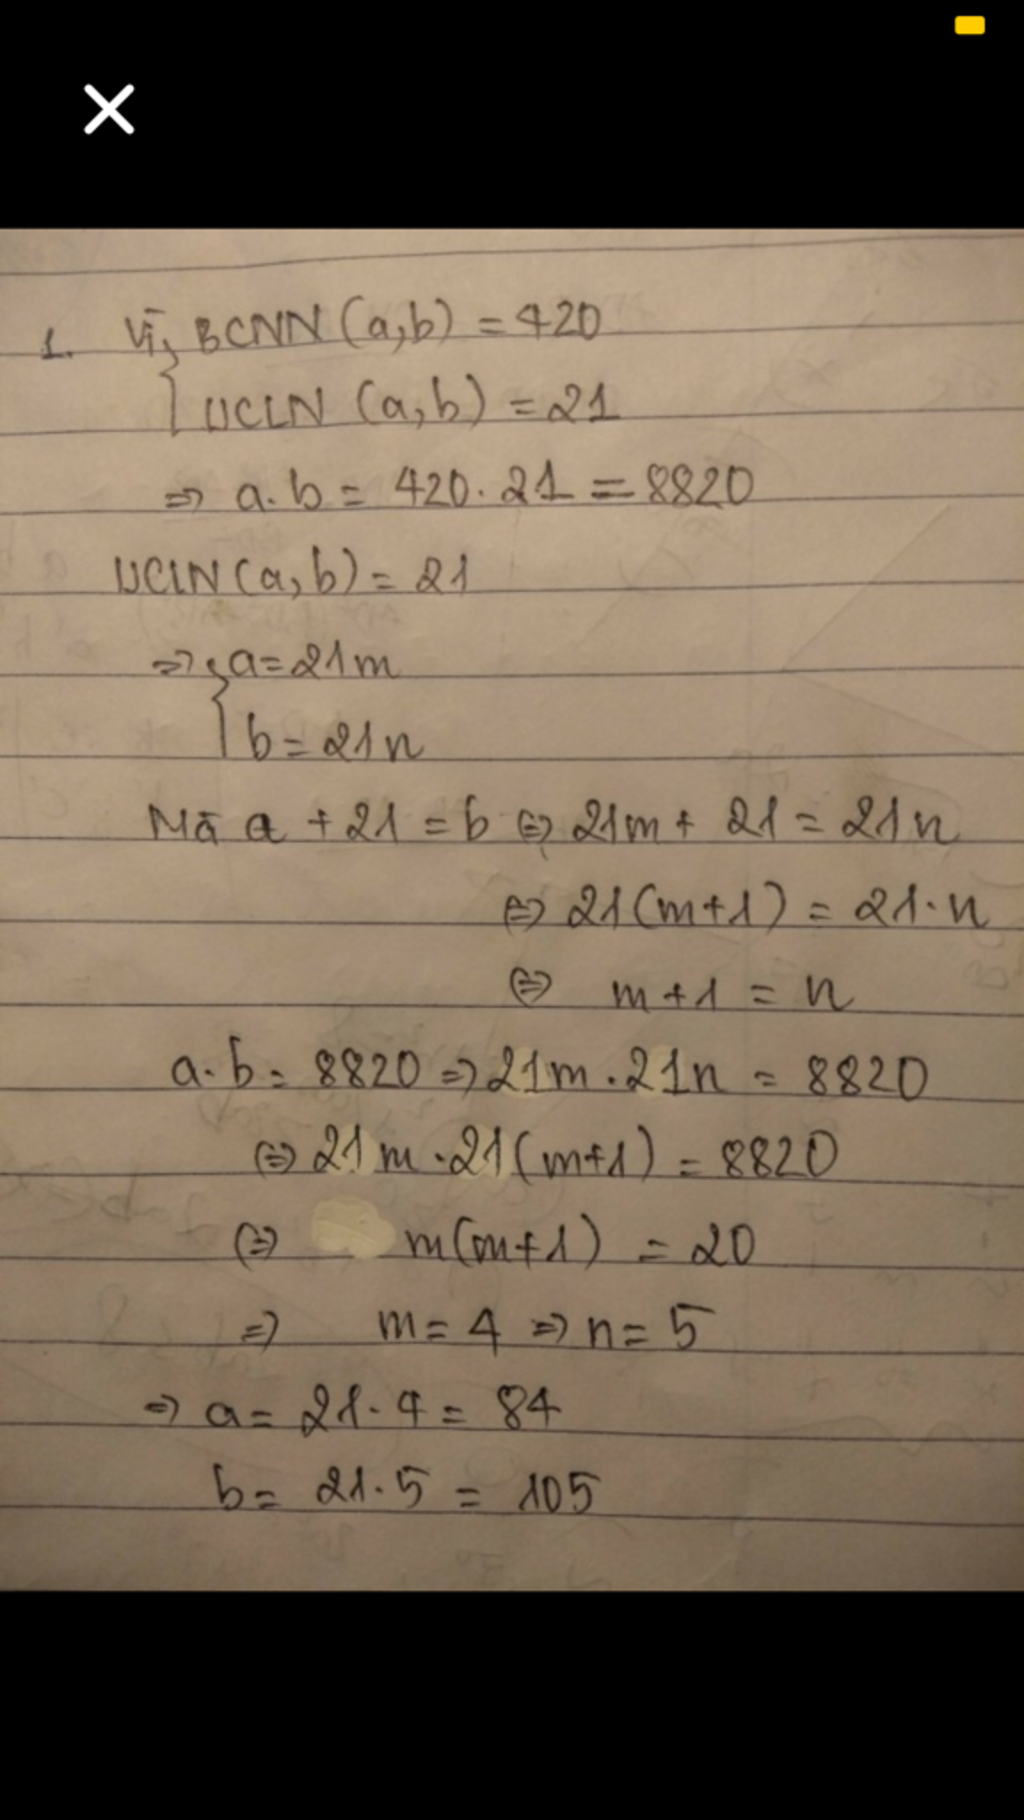 1. Vì BCNN (a,b) = 420
ƯCLN (a,b) = 21
=> a.b = 420.21 = 8820
ƯCLN (a,b) = 21
=> a = 21m
b = 21n
Mà a + 21 = b <=> 21m + 21 = 21n
<=> 21(m+1) = 21.n
<=> m+1 = n
a.b = 8820 => 21m.21n = 8820
<=> 21m.21(m+1) = 8820
<=> m(m+1) = 20
=> m = 4 => n = 5
=> a = 21.4 = 84
b = 21.5 = 105